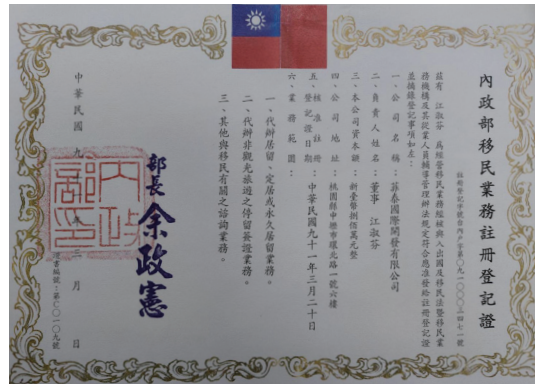 內政部移民業務註冊登記證
茲有 江淑芬 為經營移民業務經核與入出國及移民法暨移民業
務機構及其從業人員輔導管理辦法規定符合應准發給註冊登記證
並摘錄登記事項如左：
一、公司名稱：菲泰國際開發有限公司
二、負責人姓名：董事 江淑芬
三、本公司資本額：新臺幣捌佰萬元整
四、公司地址：桃園縣中壢市環北路一號六樓
五、核准註冊登記日期：中華民國九十一年三月二十日
六、業務範圍：
一、代辦居留、定居或永久居留業務。
二、代辦非觀光旅遊之停留簽證業務。
三、其他與移民有關之諮詢業務。
部長 余政憲
內政部印
中華民國九十一年三月 日